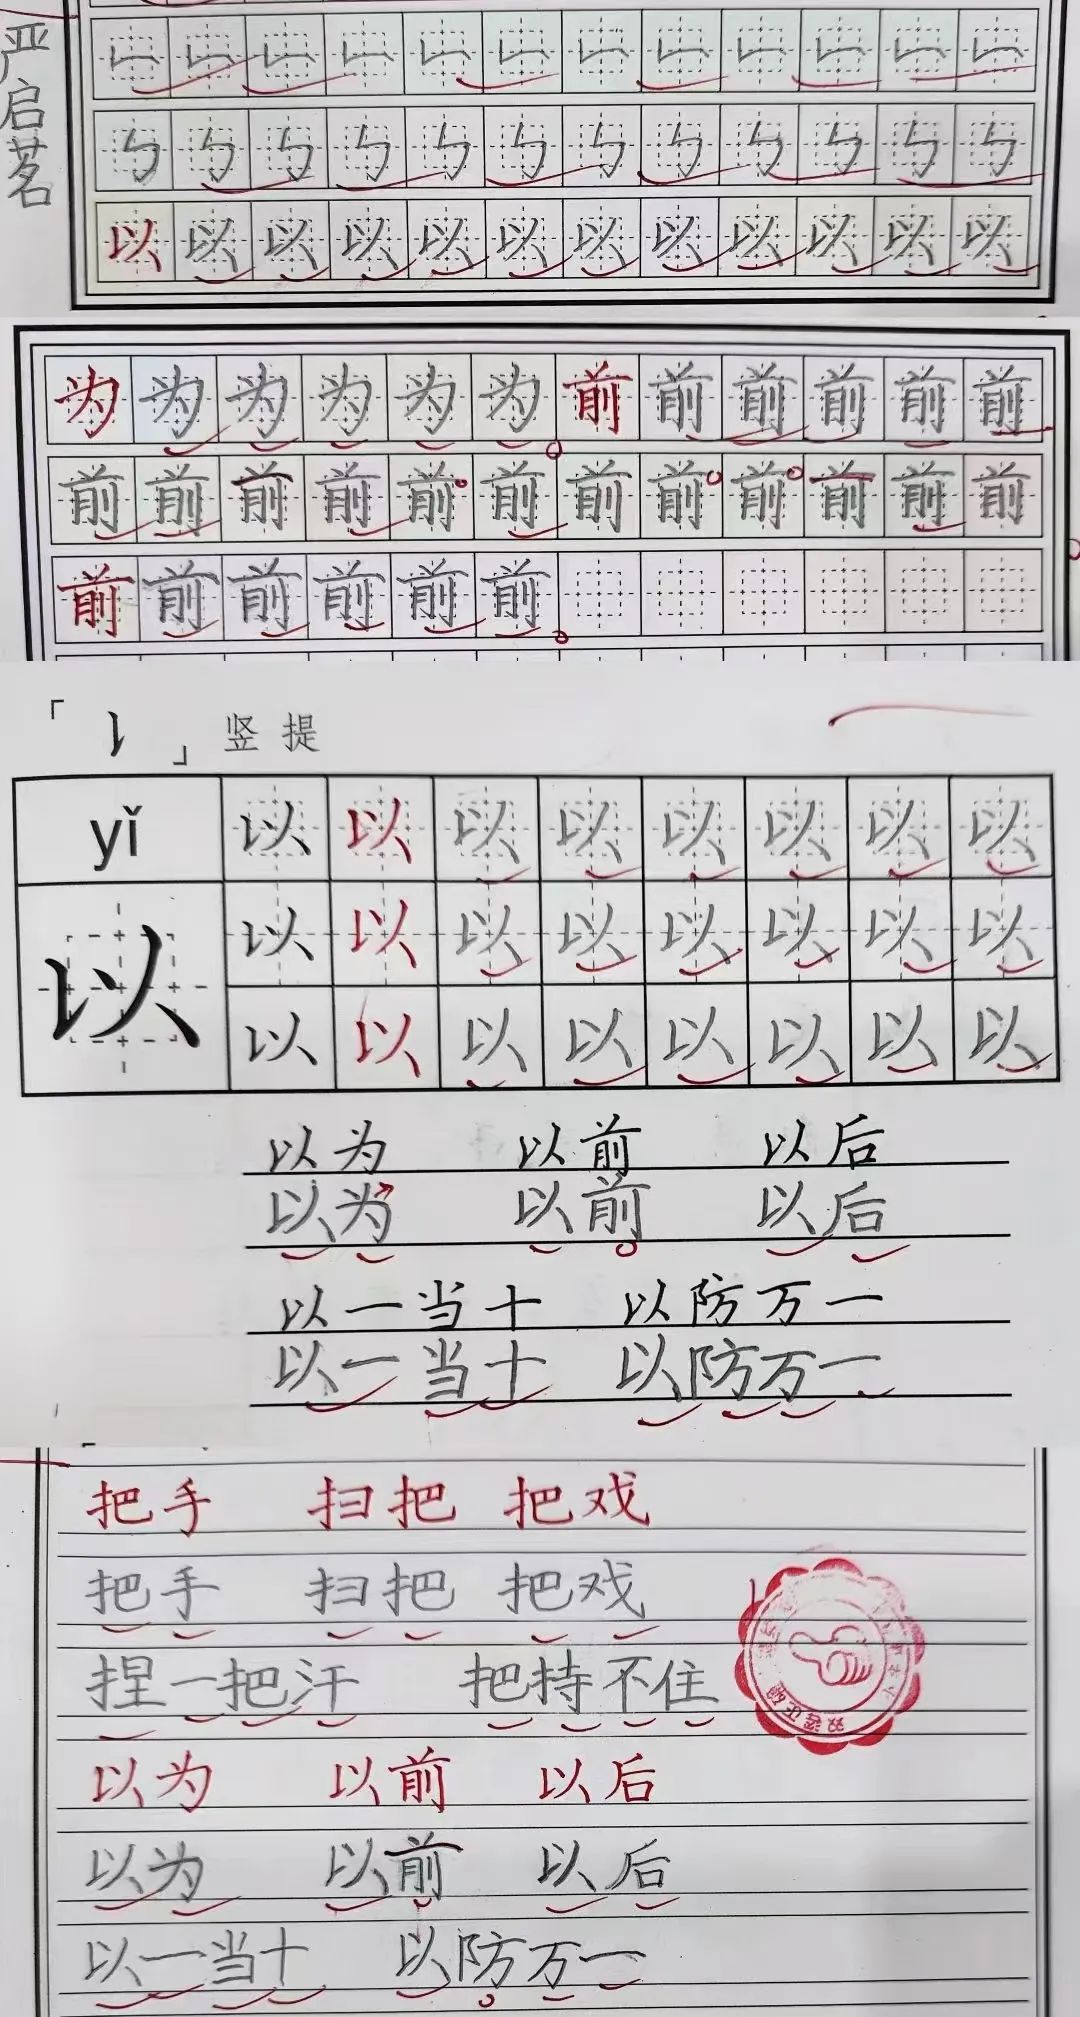 严启茗
以以以以以以以以以以以以
为为为为为为前前前前前前
前前前前前前前前前前前前
前前前前前前
「㇙」竖提
yǐ 以以以以以以以以
以 以以以以以以以以
以以以以以以以以
以为 以前 以后
以为 以前 以后
以一当十 以防万一
以一当十 以防万一
把手 扫把 把戏
把手 扫把 把戏
捏一把汗 把持不住
以为 以前 以后
以为 以前 以后
以一当十 以防万一